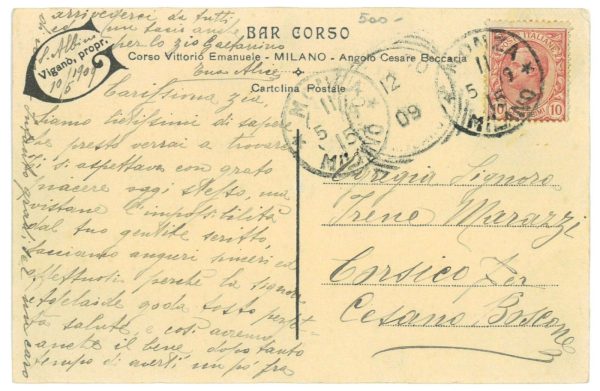 arrivederci da tutti
e un bacio anche
per lo zio Gaetanino
Cuor Alice
500-
BAR CORSO
Corso Vittorio Emanuele - MILANO - Angolo Cesare Beccaria
Cartolina Postale
G. Viganò, propr.
S. Albino
10/5 1909
Carissima zia,
Siamo lietissimi di sapere
che presto verrai a trovar
ti aspettava con grato
piacere oggi stesso, ma
vistane l'impossibilità
dal tuo gentile scritto,
facciamo auguri sinceri ed
affettuosi perchè la signora
Adelaide goda tosto perfet-
ta salute, e così avremo
anche il bene, dopo tanto
tempo di averti un pò fra
MONZA
11 5
15
MILANO
12
09
MONZA
11 5
15
MILANO
POSTE ITALIANE
10
Egregia Signora
Irene Marazzi
Corsico per
Cesano Boscone